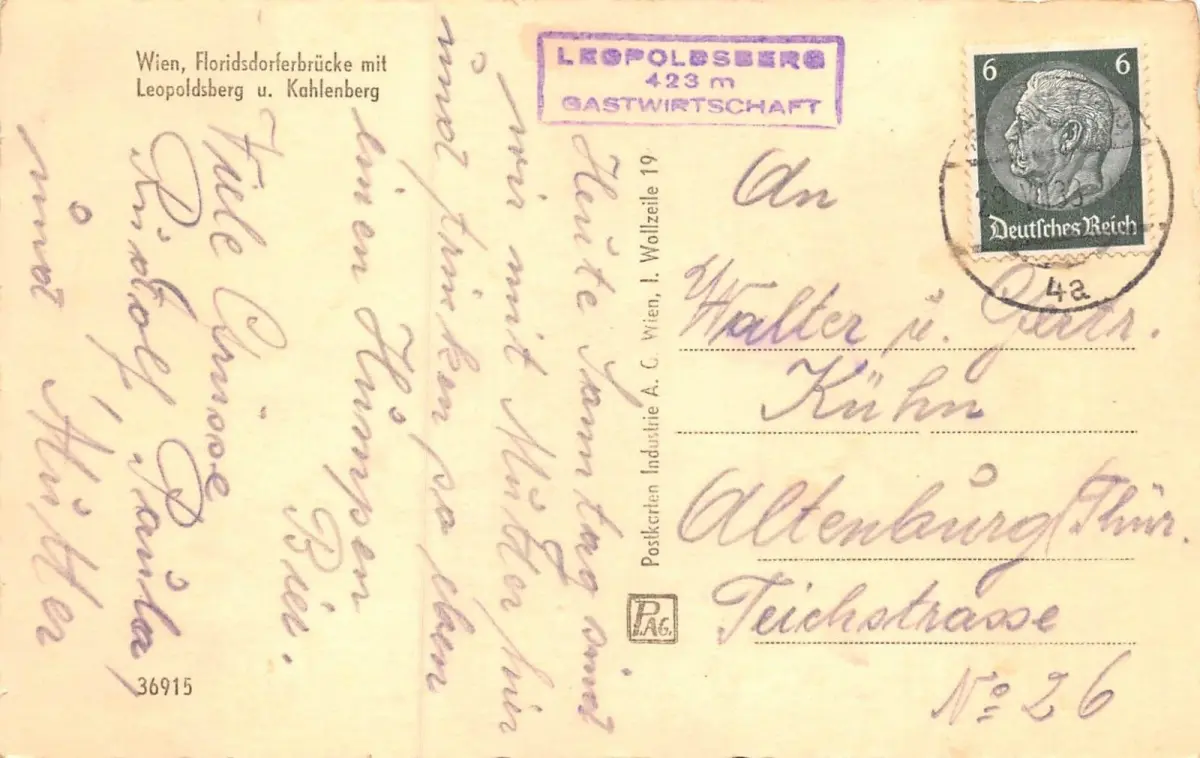 Wien, Floridsdorferbrücke mit
Leopoldsberg u. Kahlenberg
LEOPOLDSBERG
423 m
GASTWIRTSCHAFT
6 6
Deutsches Reich
4a
Heute Sonntag sind
wir mit Mutter hier
und trinken so eben
einen Humpen
Bier.
Viele Grüsse
Rudolf, Paula,
und Mutter
Postkarten Industrie A. G. Wien, I. Wollzeile 19
PAG.
An
Walter u. Gertr.
Kühn
Altenburg (Thür.
Teichstrasse
No 26
36915